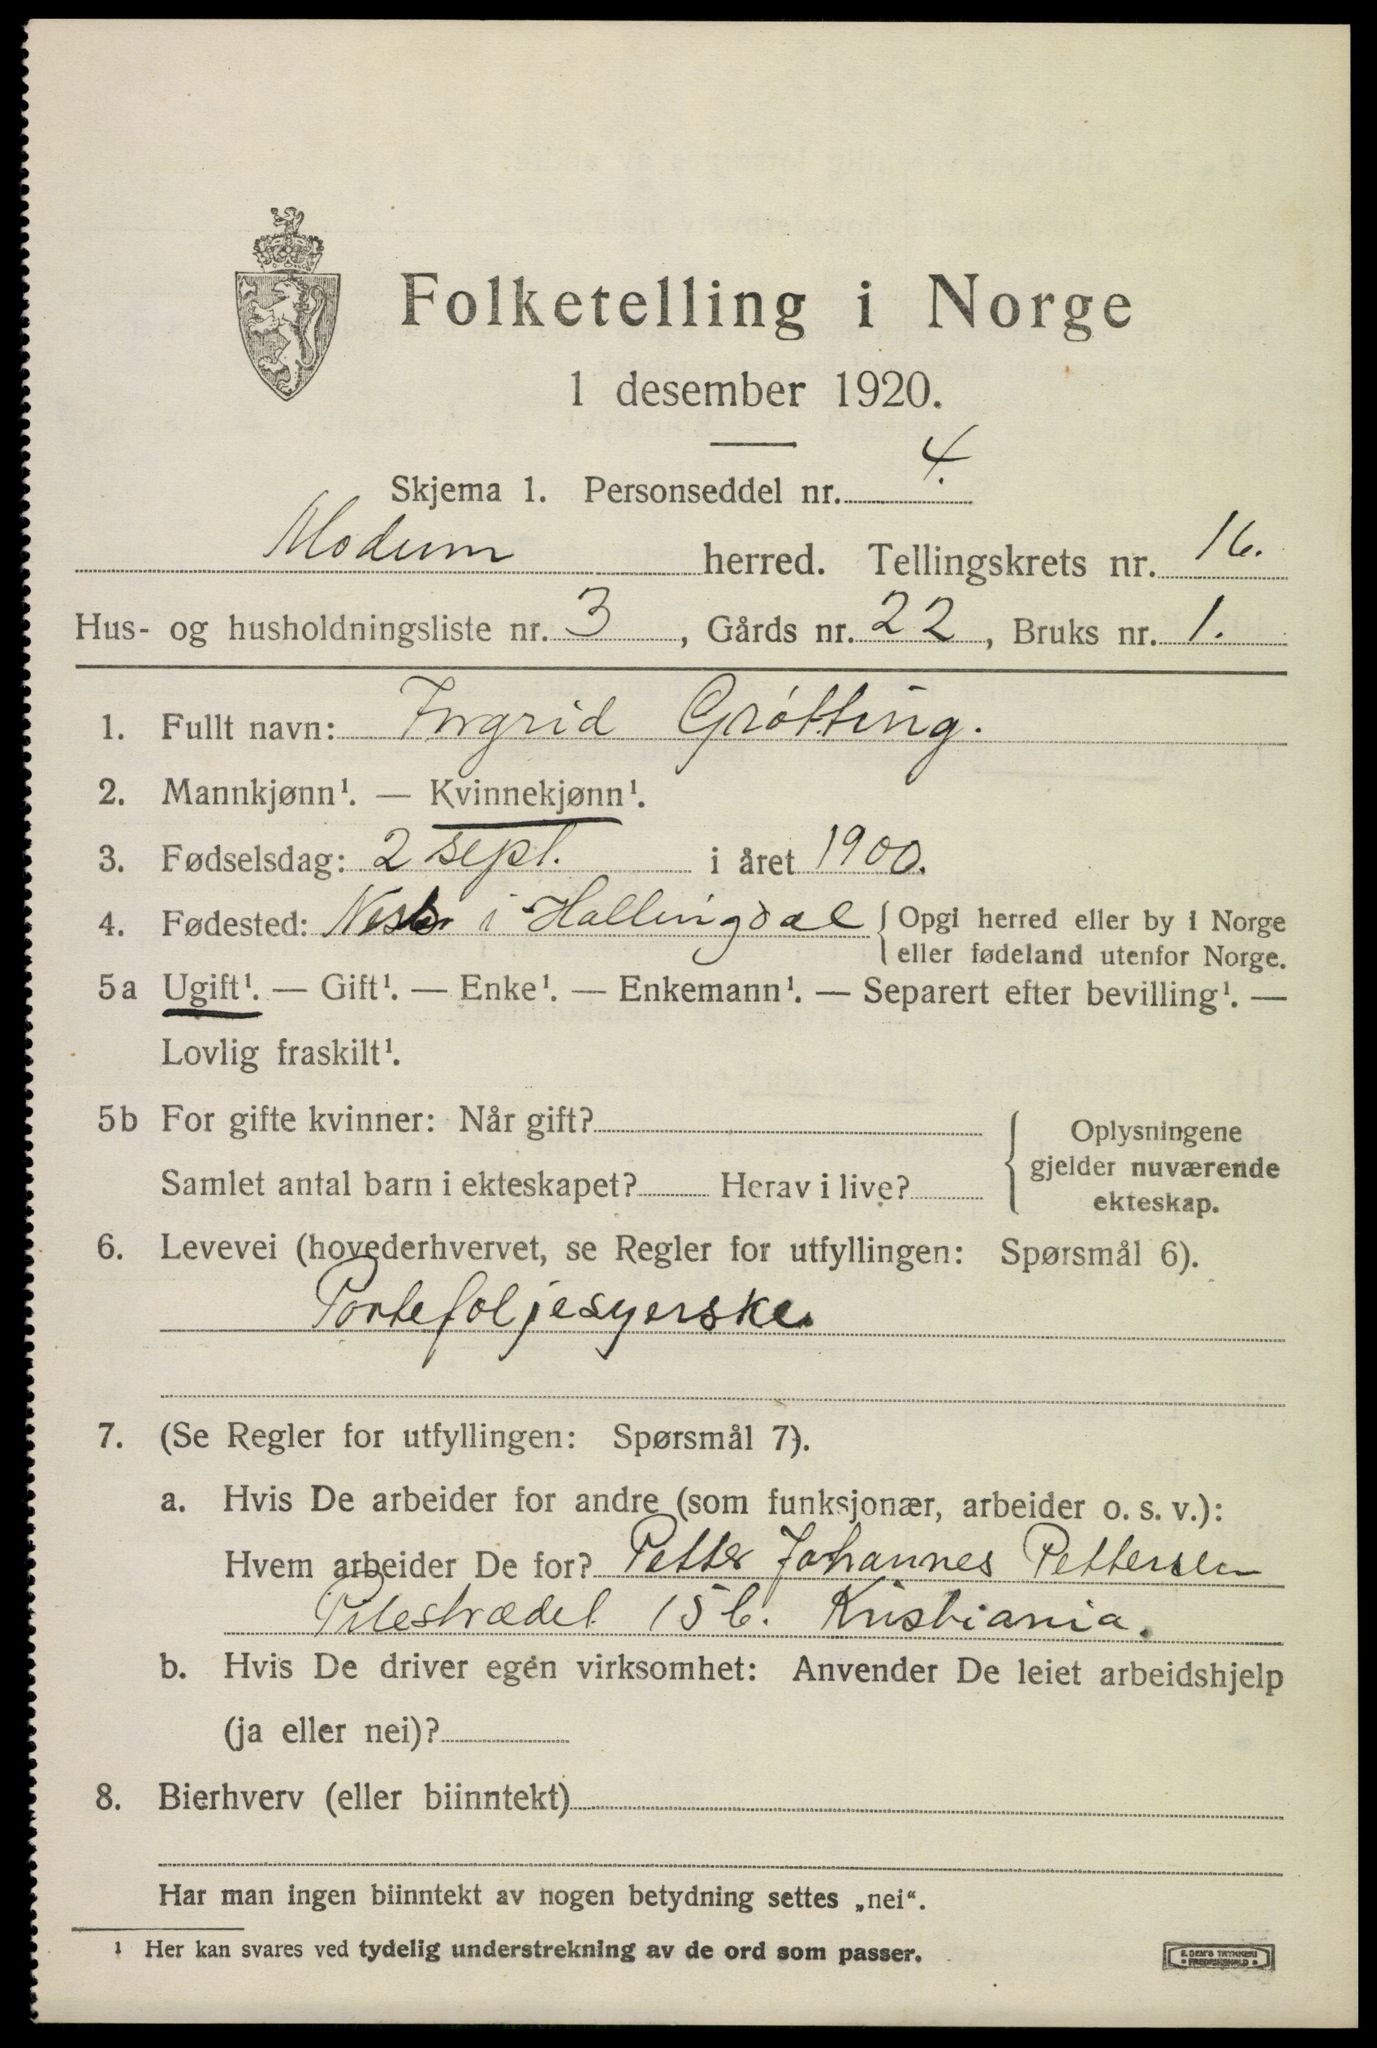 Folketelling i Norge
1 desember 1920.
Skjema 1. Personseddel nr. 4.
Modum herred. Tellingskrets nr. 16.
Hus- og husholdningsliste nr. 3, Gårds nr. 22, Bruks nr. 1.
1. Fullt navn: Ingrid Grøtting.
2. Mannkjønn¹. — Kvinnekjønn¹.
3. Fødselsdag: 2 sept. i året 1900.
4. Fødested: i Hallingdal { Opgi herred eller by i Norge
eller fødeland utenfor Norge.
5a Ugift¹. — Gift¹. — Enke¹. — Enkemann¹. — Separert efter bevilling¹. —
Lovlig fraskilt¹.
5b For gifte kvinner: Når gift? { Oplysningene
gjelder nuværende
Samlet antal barn i ekteskapet? Herav i live?
ekteskap.
6. Levevei (hovederhvervet, se Regler for utfyllingen: Spørsmål 6).
Portefoljesyerske.
7. (Se Regler for utfyllingen: Spørsmål 7).
a. Hvis De arbeider for andre (som funksjonær, arbeider o. s. v.):
Hvem arbeider De for? Petter Johannes Pettersen
Pilestrædet 15b. Kristiania.
b. Hvis De driver egen virksomhet: Anvender De leiet arbeidshjelp
(ja eller nei)?
8. Bierhverv (eller biinntekt)
Har man ingen biinntekt av nogen betydning settes „nei“.
¹ Her kan svares ved tydelig understrekning av de ord som passer.
E. SEM'S TRYKKERI
FREDRIKSHALD